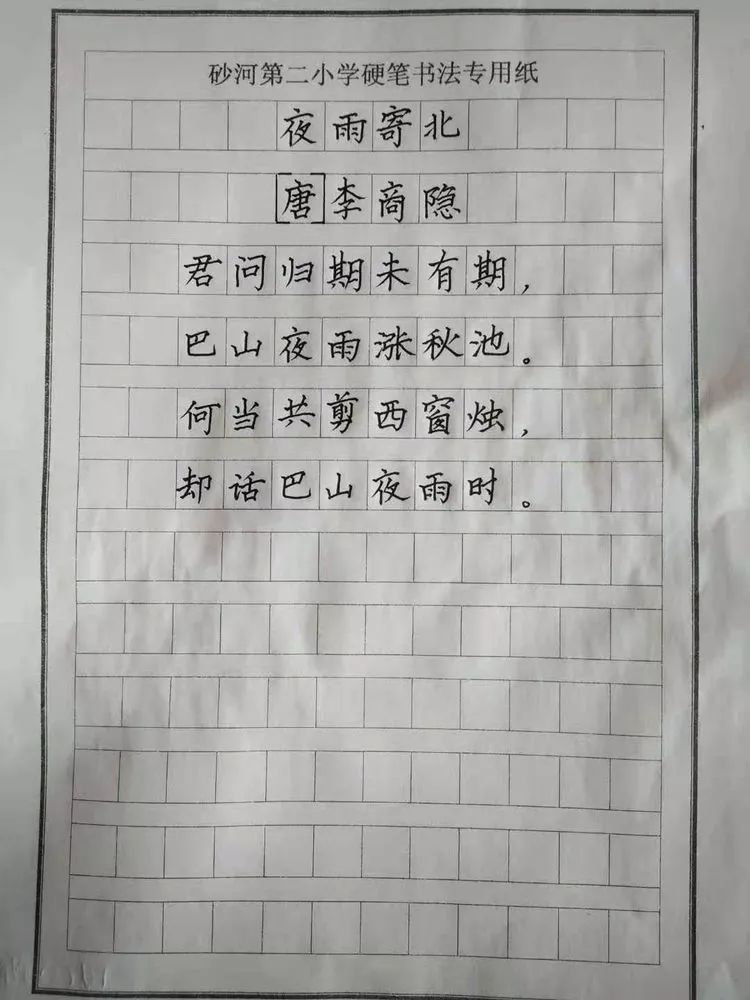 砂河第二小学硬笔书法专用纸
夜雨寄北
[唐]李商隐
君问归期未有期，
巴山夜雨涨秋池。
何当共剪西窗烛，
却话巴山夜雨时。